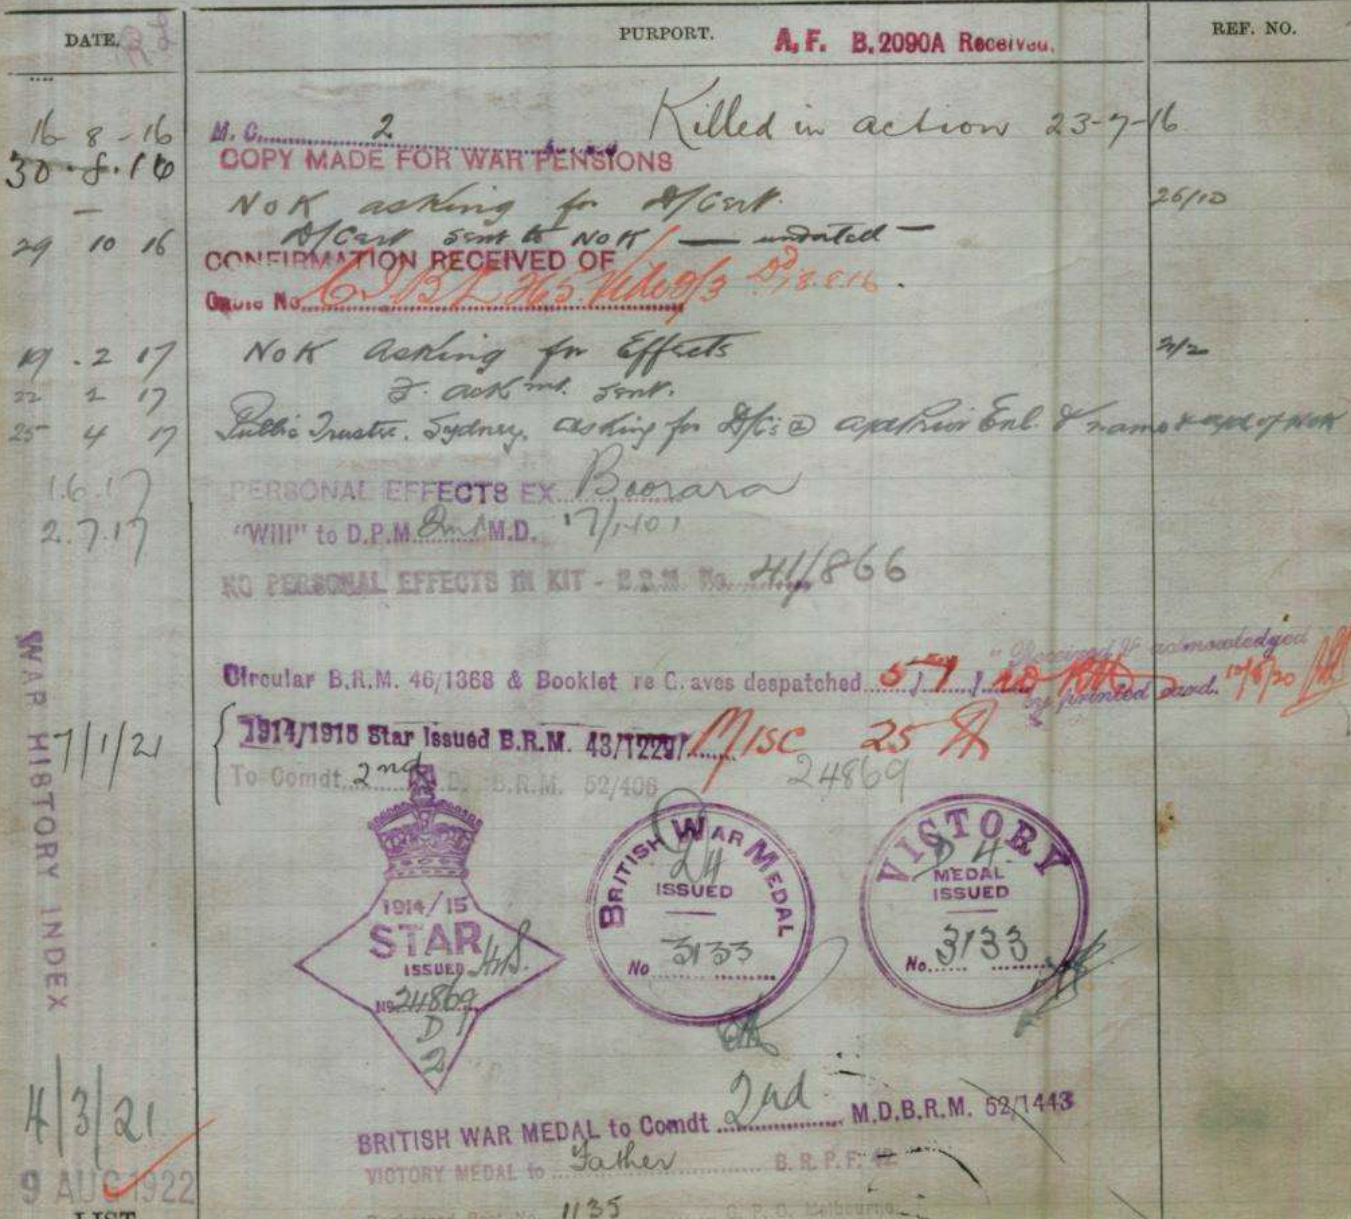 DATE. PURPORT. A.F. B.2090A Received. REF. NO.
16-8-16 M.C. 2 Killed in action 23-7-16
30.8.16 COPY MADE FOR WAR PENSIONS
- NoK asking for D/Cert. 26/10
29 10 16 D/Cert sent to NoK — undated —
CONFIRMATION RECEIVED OF
Cable No. 365 8.8.16.
19.2 17 NoK asking for Effects 2/2
22 2 17 F. ackmt. sent.
25 4 17 Public Trustee. Sydney. asking for Enl. & name & add of NOK
1.6.17 PERSONAL EFFECTS EX Boorara
2.7.17 "Will" to D.P.M. 2nd M.D. 17/1401
NO PERSONAL EFFECTS IN KIT - B.R.M. No. 41/866
"Received & acknowledged
Circular B.R.M. 46/1368 & Booklet re Graves despatched 5/7/20
by printed card. 10/8/20
7/1/21 1914/1915 Star Issued B.R.M. 43/1229/ MISC 25
To Comdt. 2nd M.D. B.R.M. 52/406 24869
WAR HISTORY INDEX
1914/15
STAR
ISSUED
No 24869
D
2
BRITISH WAR MEDAL
24
ISSUED
No 3133
VICTORY
D 4.
MEDAL
ISSUED
No. 3133
4/3/21 BRITISH WAR MEDAL to Comdt 2nd M.D.B.R.M. 52/1443
9 AUG 1922 VICTORY MEDAL to Father B.R.P.F. 42
LIST 1135 G.P.O. Melbourne